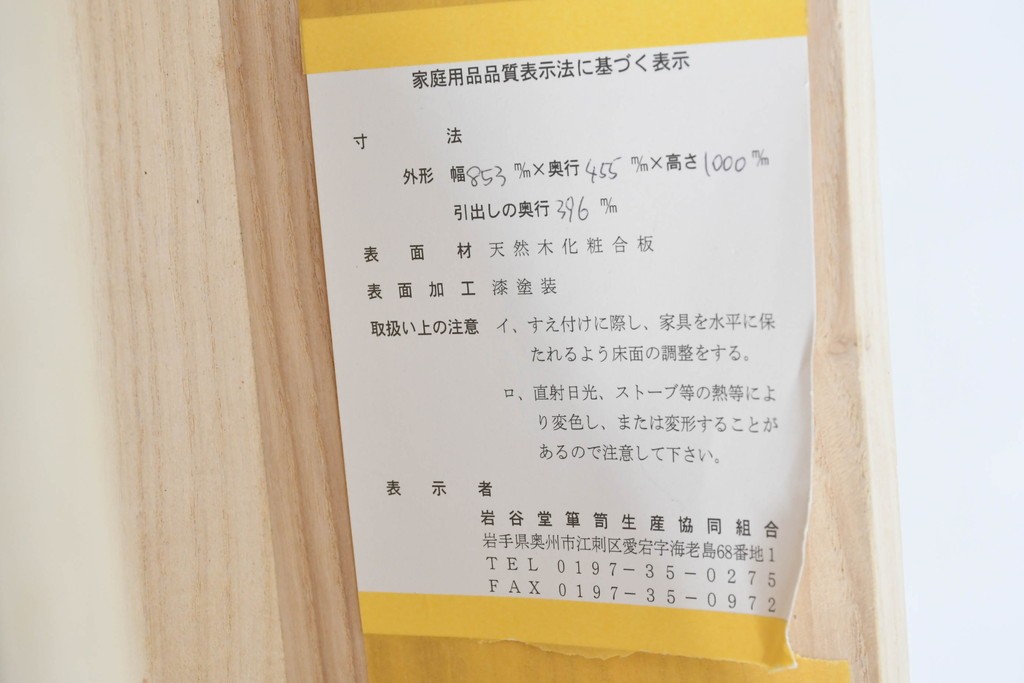 家庭用品品質表示法に基づく表示
寸法
外形 幅853㎜×奥行455㎜×高さ1000㎜
引出しの奥行396㎜
表面材 天然木化粧合板
表面加工 漆塗装
取扱い上の注意 イ、すえ付けに際し、家具を水平に保
たれるよう床面の調整をする。
ロ、直射日光、ストーブ等の熱等によ
り変色し、または変形することが
あるので注意して下さい。
表示者
岩谷堂箪笥生産協同組合
岩手県奥州市江刺区愛宕字海老島68番地1
TEL 0197-35-0275
FAX 0197-35-0972